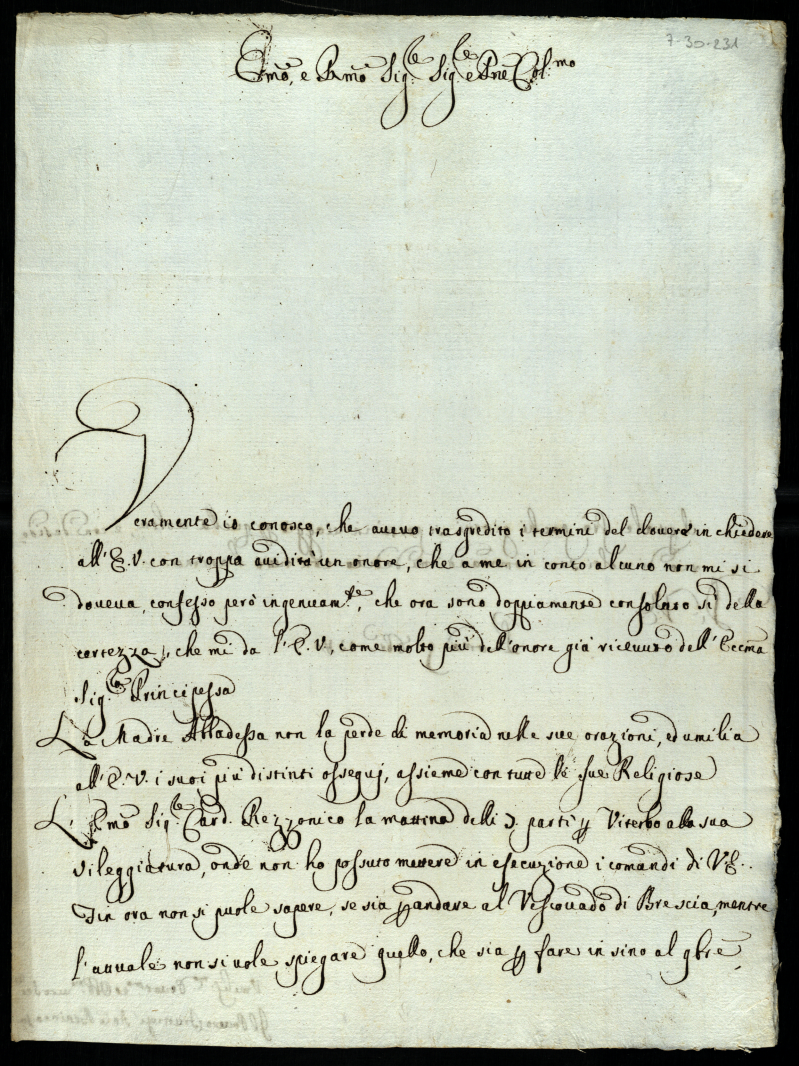 7-30-231
Emo, e Rmo Sig:re Sig:re e Pne Col:mo
Veramente io conosco, che avevo trasgredito i termini del dovere in chiedere
all'E.V. con troppa avidità un onore, che a me in conto alcuno non mi si
doveva, confesso però ingenuam:te, che ora sono doppiamente consolato sì della
certezza, che mi da l'E.V., come molto più dell'onore già ricevuto dell'Eccma
Sig:ra Principessa
La Madre Abbadessa non la perde di memoria nelle sue orazioni, ed umilia
all'E.V. i suoi più distinti ossequj, assieme con tutte le sue Religiose
L'Emo Sig:re Card. Rezzonico la mattina delli 3. partì p Viterbo alla sua
vileggiatura, onde non ho possuto mettere in esecuzione i comandi di V.E..
Fin ora non si puole sapere, se sia p andare al Vescovado di Brescia, mentre
l'avvale non si vole spiegare quello, che sia p fare in sino al 9bre